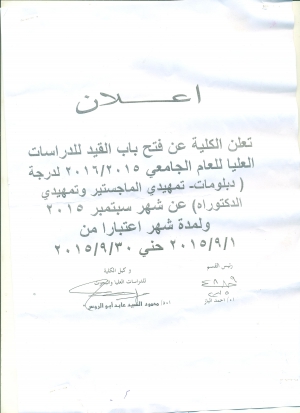 اعـــــلان
تعلن الكلية عن فتح باب القيد للدراسات
العليا للعام الجامعي ٢٠١٦/٢٠١٥ لدرجة
( دبلومات- تمهيدي الماجستير وتمهيدي
الدكتوراه) عن شهر سبتمبر ٢٠١٥
ولمدة شهر اعتبارا من
٢٠١٥/٩/١ حتي ٢٠١٥/٩/٣٠
رئيس القسم
وكيل الكلية
للدراسات العليا والبحوث
(د/ احمد الباز
(د/ محمود السيد عابد ابو الروس